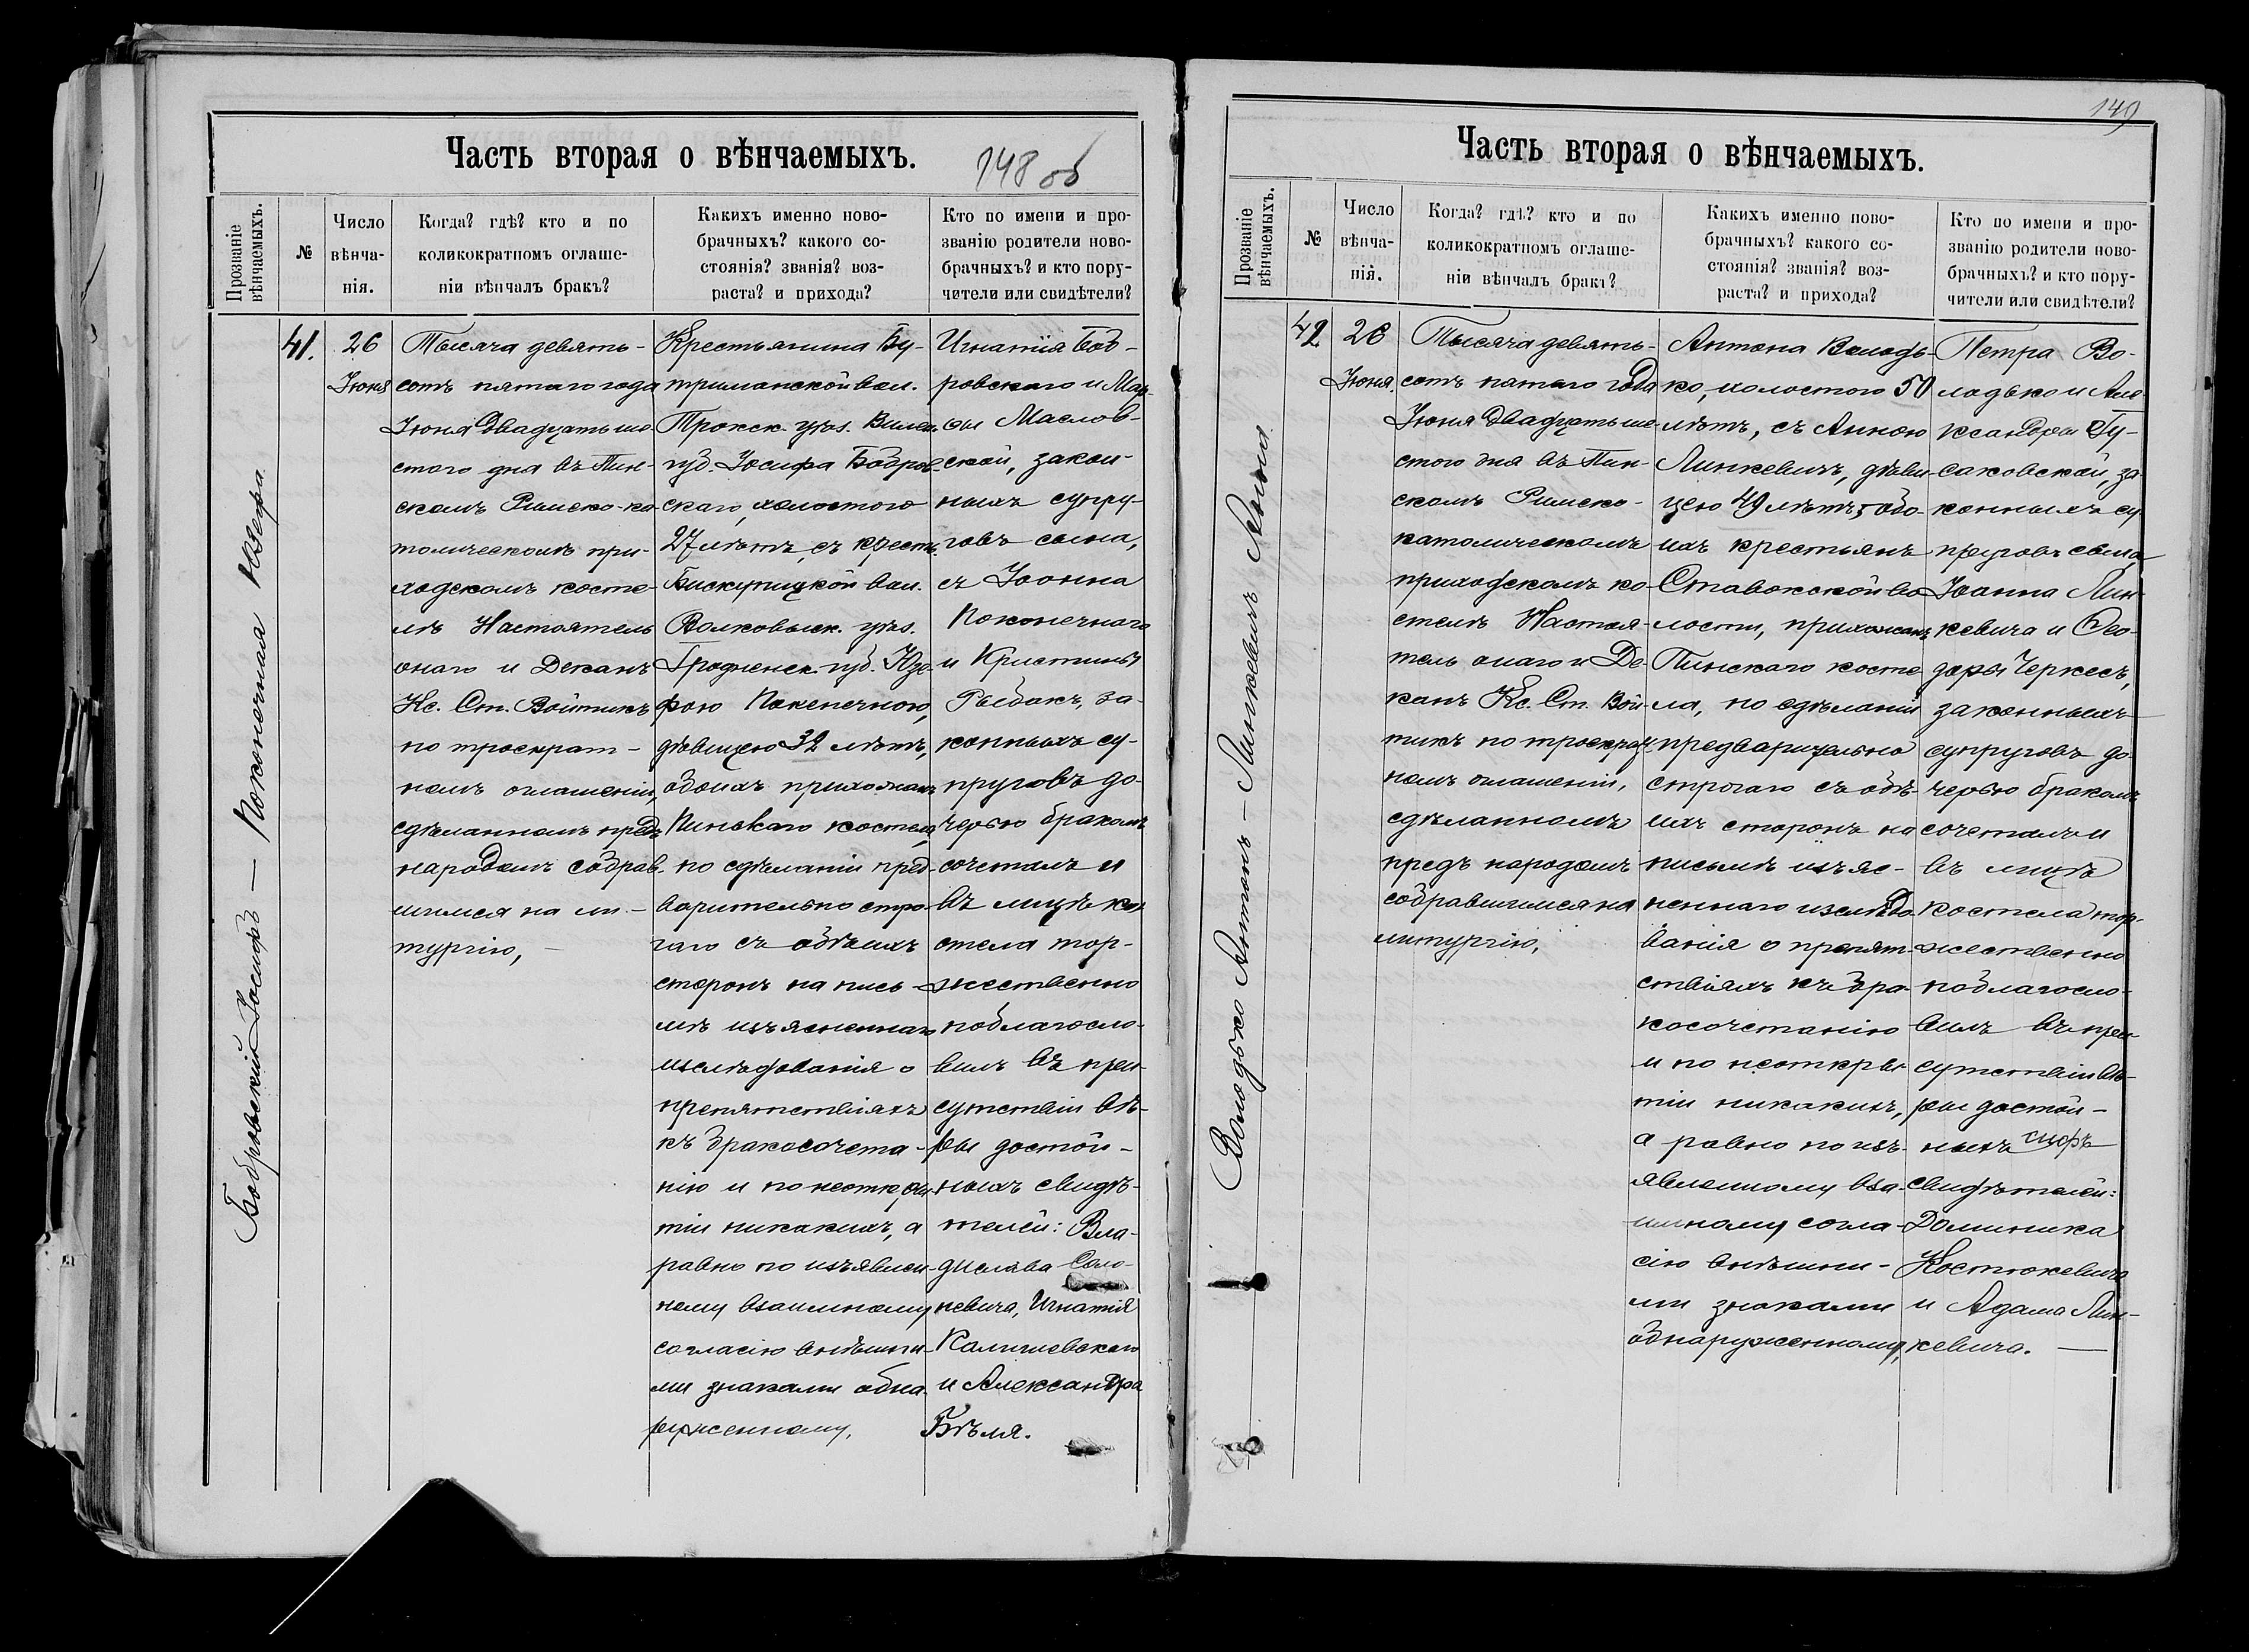 Часть вторая о вѣнчаемыхъ.
148 об
Прозваніе вѣнчаемыхъ.
№
Число вѣнча-
нія.
Когда? гдѣ? кто и по
коликократномъ оглаше-
ніи вѣнчалъ бракъ?
Какихъ именно ново-
брачныхъ? какого со-
стоянія? званія? воз-
раста? и прихода?
Кто по имени и про-
званію родители ново-
брачныхъ? и кто пору-
чители или свидѣтели?
Бобровскій Іосифъ — Поконечная Юзефа
41.
26
Іюня
Тысяча девять-
сотъ пятаго года
Іюня двадцать ше-
стого дня въ Пин-
скомъ Римско-ка-
толическомъ при-
ходскомъ косте-
лѣ Настоятель
онаго и Деканъ
Кс. Ст. Войтикъ
по троекрат-
номъ оглашеніи,
сдѣланномъ предъ
народомъ собрав-
шимся на ли-
тургію, —
Крестьянина Бу-
триманской вол.
Трокск. уѣз. Вилен.
губ. Іосифа Бобров-
скаго, холостого
27 лѣтъ, съ крест.
Бискупицкой вол.
Волковыск. уѣз.
Гродненск. губ. Юзе-
фою Поконечною,
дѣвицею 32 лѣтъ,
обоихъ прихожанъ
Пинскаго костела,
по сдѣланіи пред-
варительно стро-
гаго съ обѣихъ
сторонъ на пись-
мѣ изъясненнаго
изслѣдованія о
препятствіяхъ
къ бракосочета-
нію и по неоткры-
тіи никакихъ, а
равно по изъявлен-
ному взаимному
согласію внѣшни-
ми знаками обна-
руженному,
Игнатія Боб-
ровскаго и Мар-
ѳы Маслов-
ской, закон-
ныхъ супру-
говъ сына,
съ Іоанна
Поконечнаго
и Кристины
Рыбакъ, за-
конныхъ су-
пруговъ до-
черью бракомъ
сочеталъ и
въ лицѣ ко-
стела тор-
жественно
поблагосло-
вилъ въ при-
сутствіи вѣ-
ры достой-
ныхъ свидѣ-
телей: Вла-
дислава Соло-
невича, Игнатія
Калишевскаго
и Александра
Бѣля.
149
Часть вторая о вѣнчаемыхъ.
Прозваніе вѣнчаемыхъ.
№
Число
вѣнча-
нія.
Когда? гдѣ? кто и по
коликократномъ оглаше-
ніи вѣнчалъ бракъ?
Какихъ именно ново-
брачныхъ? какого со-
стоянія? званія? воз-
раста? и прихода?
Кто по имени и про-
званію родители ново-
брачныхъ? и кто пору-
чители или свидѣтели?
Володько Антонъ — Линкевичъ Анна
42
26
Іюня.
Тысяча девять-
сотъ пятаго года
Іюня двадцать ше-
стого дня въ Пин-
скомъ Римско-
католическомъ
приходскомъ ко-
стелѣ Настоя-
тель онаго и Де-
канъ Кс. Ст. Вой-
тикъ по троекрат-
номъ оглашеніи,
сдѣланномъ
предъ народомъ
собравшимся на
литургію,
Антона Володь-
ко, холостого 50
лѣтъ, съ Анною
Линкевичъ, дѣви-
цею 49 лѣтъ, обо-
ихъ крестьянъ
Ставокской во-
лости, прихожанъ
Пинскаго косте-
ла, по сдѣланіи
предварительно
строгаго съ обѣ-
ихъ сторонъ на
письмѣ изъяс-
неннаго изслѣдо-
ванія о препят-
ствіяхъ къ бра-
косочетанію
и по неоткры-
тіи никакихъ,
а равно по изъ-
явленному вза-
имному согла-
сію внѣшни-
ми знаками
обнаруженному,
Петра Во-
лодько и Але-
ксандры Гу-
саковской, за-
конныхъ су-
пруговъ сына,
Іоанна Лин-
кевича и Ѳео-
доры Черкесъ,
законныхъ
супруговъ до-
черью бракомъ
сочеталъ и
въ лицѣ
костела тор-
жественно
поблагосло-
вилъ въ при-
сутствіи вѣ-
ры достой-
ныхъ
свидѣтелей:
Доминика
Костюкевича
и Адама Лин-
кевича. —